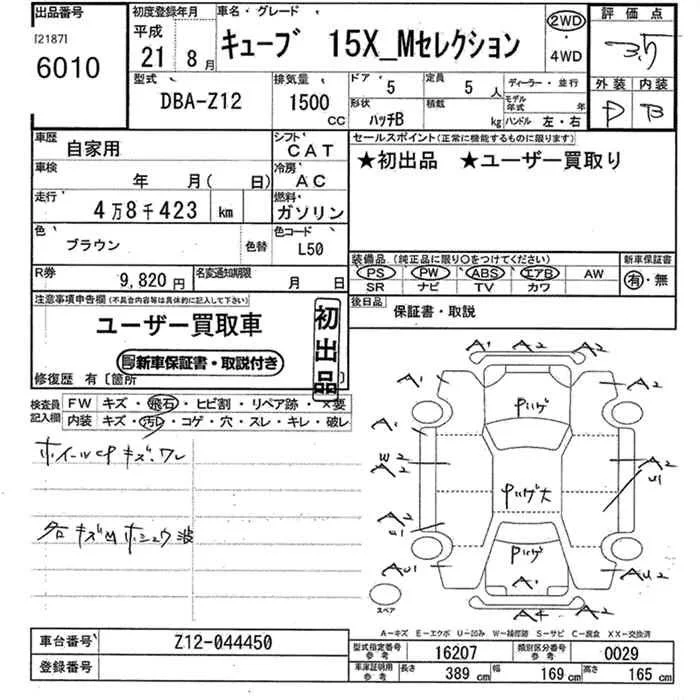 出品番号 初度登録年月 車名・グレード 2WD ・ 4WD 評価点
[2187] 6010 平成 21 8月 キューブ 15X_Mセレクション 3.5
型式 排気量 ドア 5 定員 5人 ディーラー・並行 外装 内装
DBA-Z12 1500 CC 形状 ハッチB 積載 kg モデル年式 年 ハンドル 左・右 D B
車歴 自家用 シフト CAT セールスポイント(正常に機能するものに限ります)
車検 年 月( 日) 冷房 AC ★初出品 ★ユーザー買取り
走行 4万8千423 km 燃料 ガソリン
色 ブラウン 色替 色コード L50
装備品(純正品に限り○をつけてください) 新車保証書
PS ・ PW ・ ABS ・ エアB ・ AW 有・無
SR ナビ TV カワ
R券 9,820円 名変通知期限 月 日
後日品 保証書・取説
注意事項申告欄(不具合内容等は具体的に記入して下さい)
ユーザー買取車
新車保証書・取説付き
初出品
修復歴 有〔箇所
検査員記入欄 FW キズ・飛石・ヒビ割・リペア跡・×要
内装 キズ・汚レ・コゲ・穴・スレ・キレ・破レ
ホイールcPキズ、ワレ
各キズMホシュウ波
A1 A2 A2
A1 A2
Pハゲ
A1
W2
A2 A2
U1
Pハゲ大
Pハゲ
AU1 AU2
A1
A4 A2
スペア
A-キズ E-エクボ U-凹み W-補修跡 S-サビ C-腐食 XX-交換済
車台番号 Z12-044450
登録番号
型式指定番号 参考 16207 類別区分番号 参考 0029
車庫証明用 参考 長さ 389 cm 幅 169 cm 高さ 165 cm